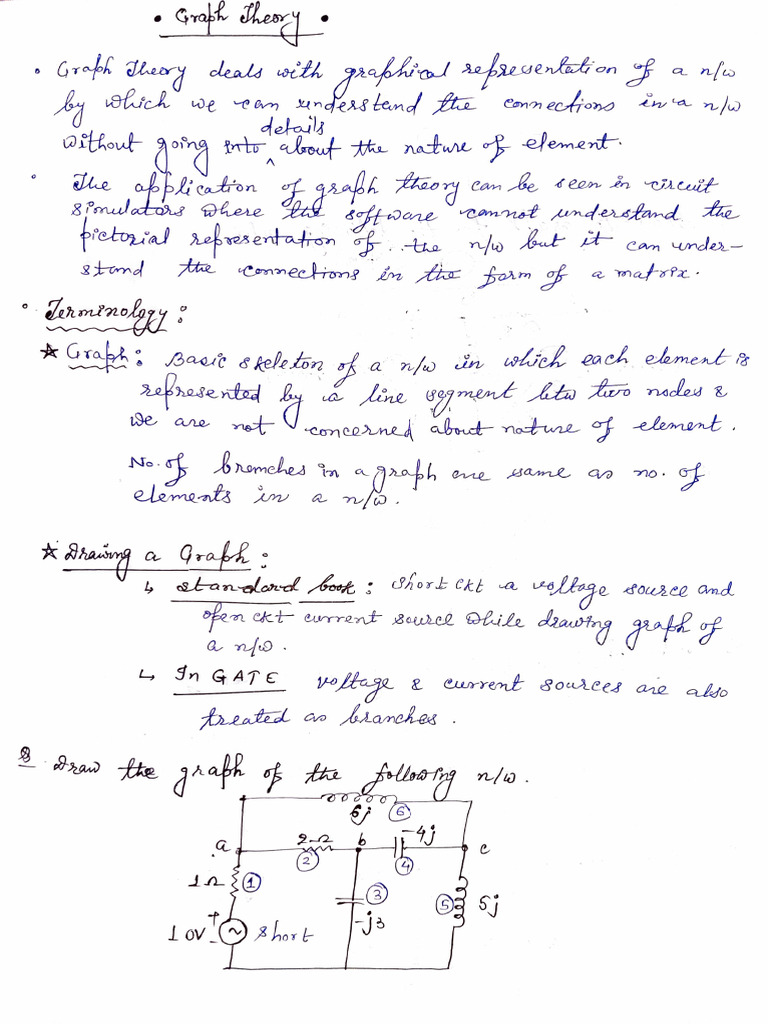 • Graph Theory •
• Graph Theory deals with graphical representation of a n/w
by which we can understand the connections in a n/w
details
without going into ^ about the nature of element.
• The application of graph theory can be seen in circuit
simulators where the software cannot understand the
pictorial representation of the n/w but it can under-
stand the connections in the form of a matrix.
• Terminology:
☆ Graph: Basic skeleton of a n/w in which each element is
represented by a line segment btw two nodes &
we are not concerned about nature of element.
No. of branches in a graph are same as no. of
elements in a n/w.
☆ Drawing a Graph:
↳ standard book: short ckt a voltage source and
open ckt current source while drawing graph of
a n/w.
↳ In GATE voltage & current sources are also
treated as branches.
Q Draw the graph of the following n/w.
6j 6
a 2Ω b -4j c
2 4
1Ω 1 3 5 5j
-j3
10V + - short